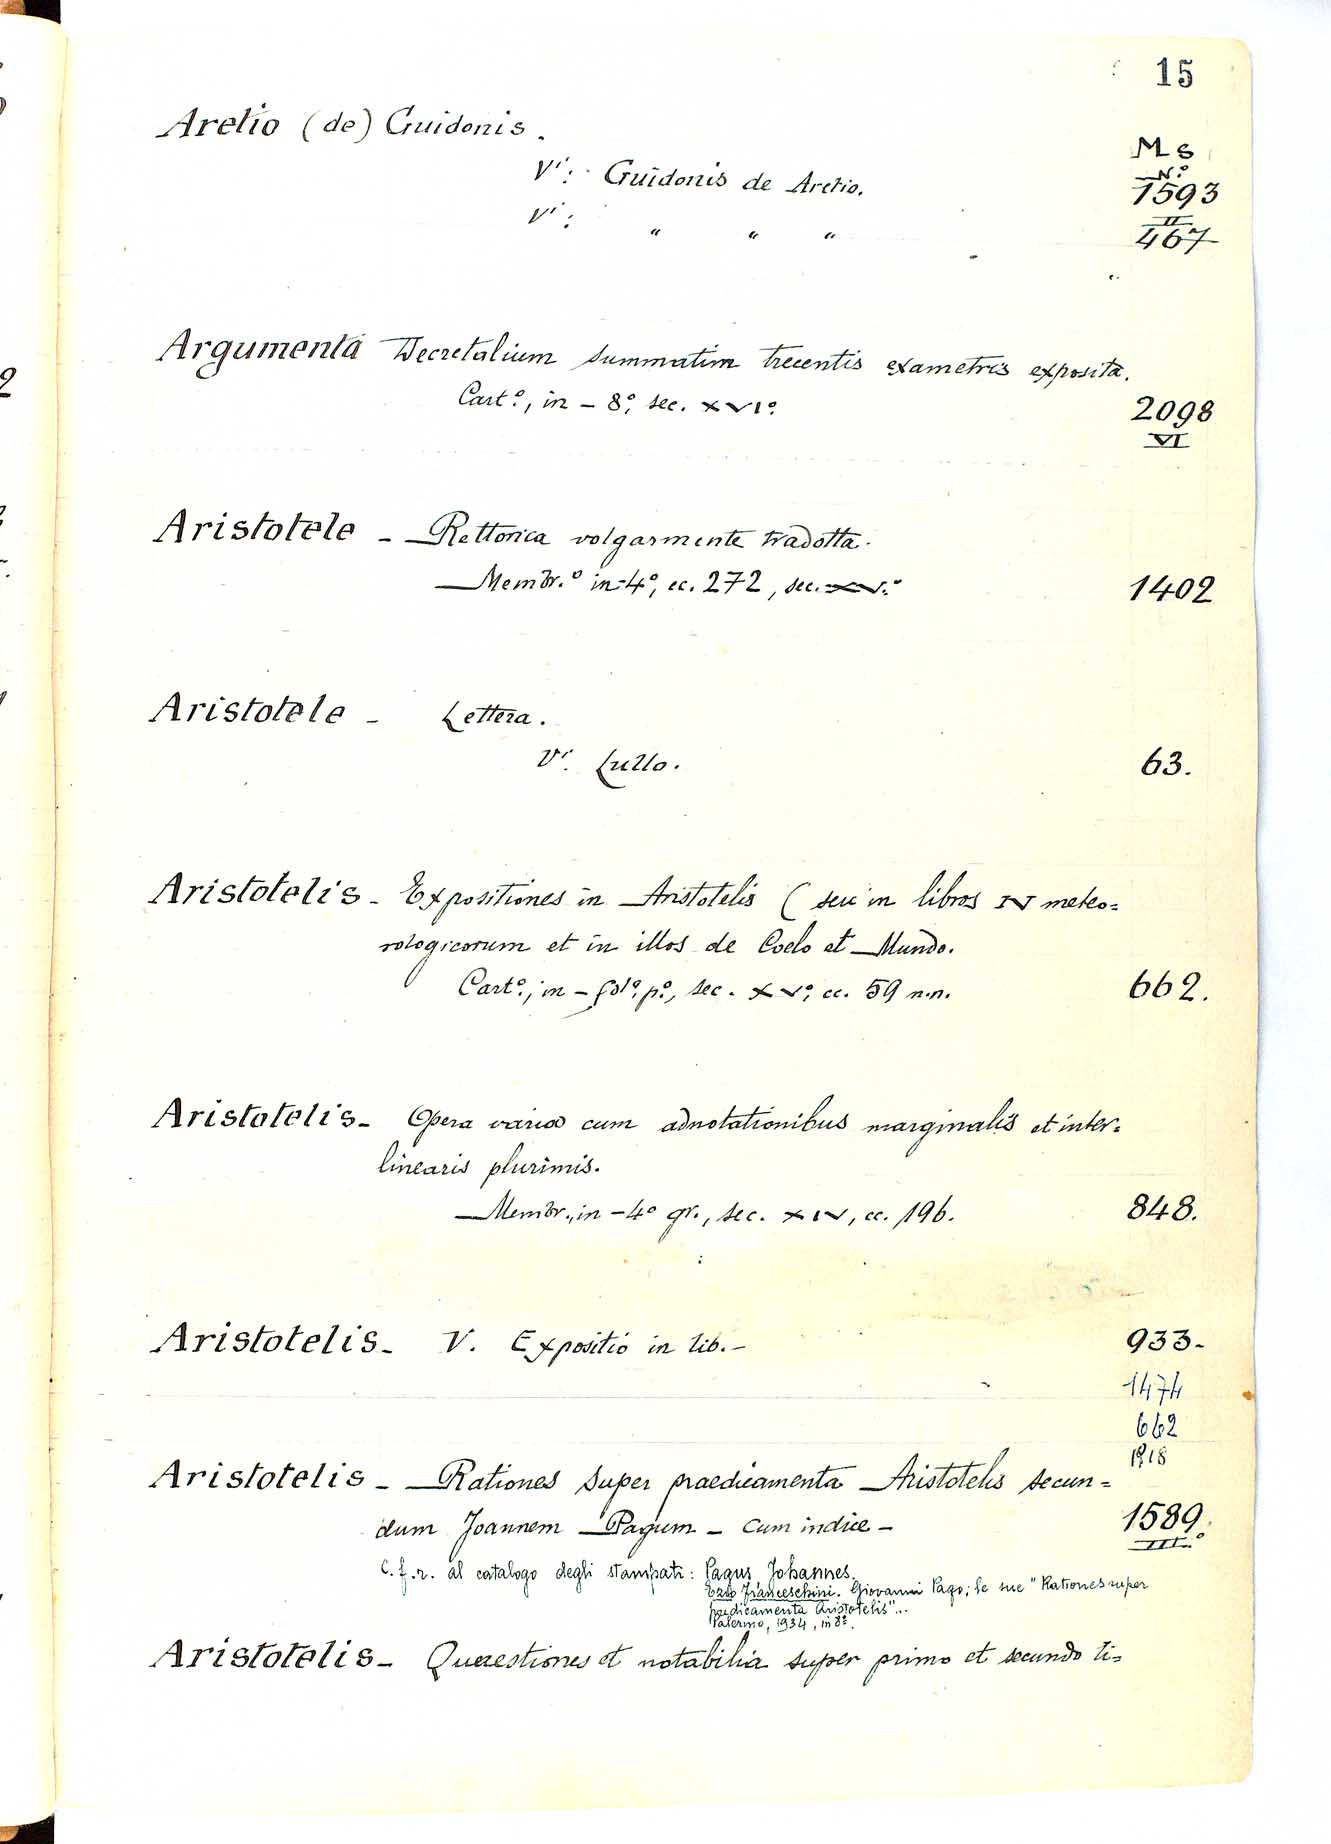 15
Aretio (de) Guidonis.
Ms
N.º
Vi: Guidonis de Aretio. 1593
II
Vi: " " " 467
Argumenta Decretalium summatim trecentis exametris exposita.
Cart.º, in-8º, sec. XVIº. 2098
VI
Aristotele - Rettorica volgarmente tradotta.
Membr.º in-4º, cc. 272, sec. XV.º 1402
Aristotele - Lettera.
Vi. Lullo. 63.
Aristotelis - Expositiones in Aristotelis (seu in libros IV meteo=
rologicorum et in illos de Coelo et Mundo.
Cart.º, in-fol.º p.º, sec. XVº, cc. 59 n.n. 662.
Aristotelis - Opera varia cum adnotationibus marginalis et inter=
linearis plurimis.
Membr., in-4º gr., sec. XIV, cc. 196. 848.
Aristotelis - V. Expositio in lib.- 933-
1474
662
1918
Aristotelis - Rationes super praedicamenta Aristotelis secun=
dum Joannem Pagum - cum indice - 1589.
III.º
C.f.r. al catalogo degli stampati: Pagus Johannes.
Ezio Franceschini. Giovanni Pago; le sue "Rationes super
praedicamenta Aristotelis"...
Palermo, 1934, in 8º.
Aristotelis - Quaestiones et notabilia super primo et secundo li=